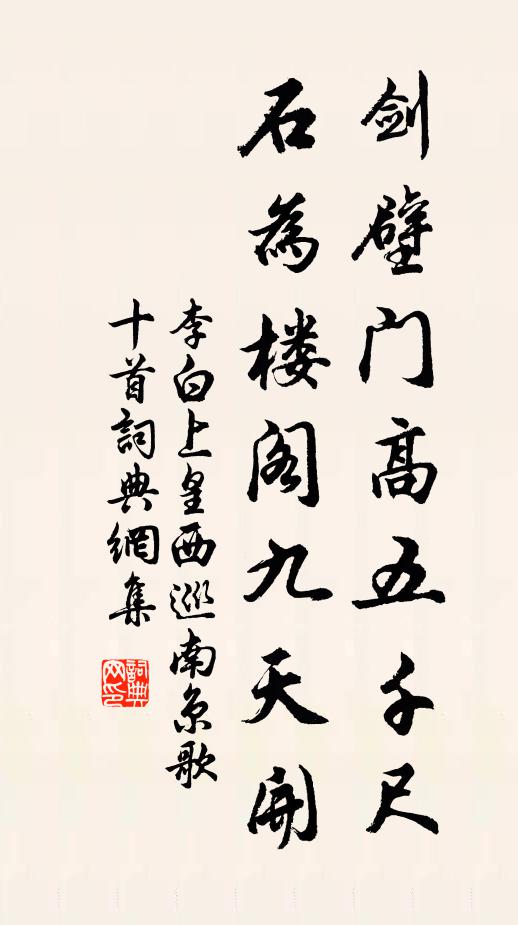 剑壁门高五千尺
石為楼阁九天開
李白上皇西巡南京歌
十首詞典網集
詞典网印